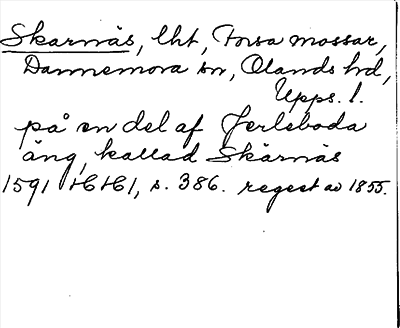 Skarnäs, lht, Forsa mossar,
Dannemora sn, Olands hd,
Upps. l.
på en del af Jerleboda
äng, kallad Skärnäs
1591 HH1, s. 386. regest av 1855.